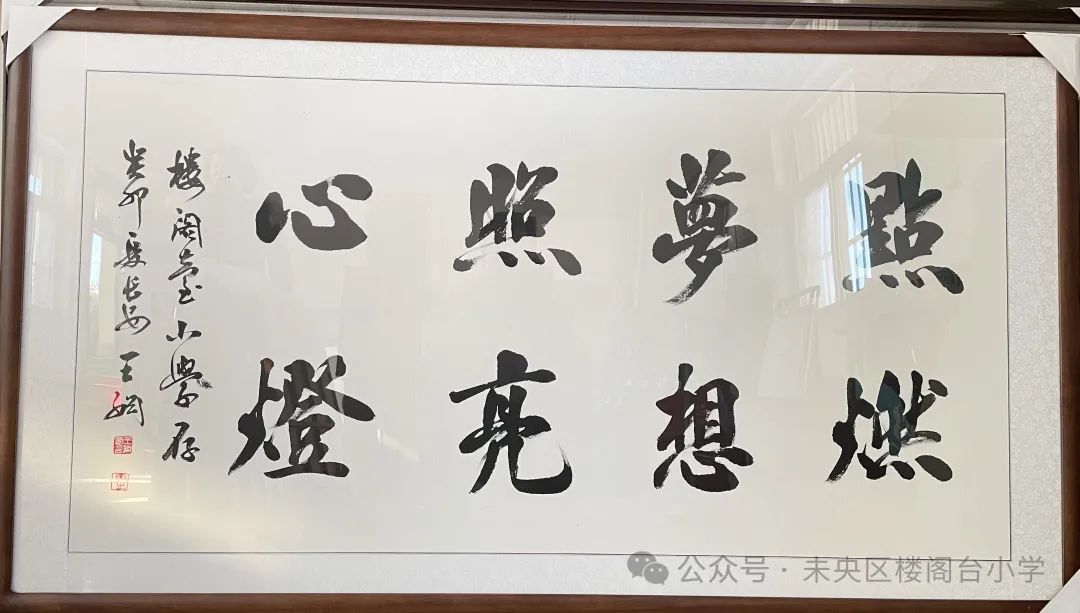 點燃
夢想
照亮
心燈
楼阁臺小學存
癸卯夏長安王
公众号·未央区楼阁台小学